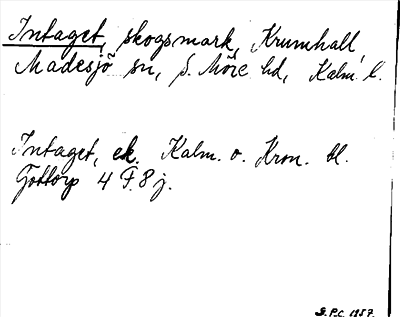 Intaget, skogsmark, Krumhall,
Madesjö sn, S. Möre hd, Kalm. l.
Intaget, ek. Kalm. o. Kron. bl.
Gottorp 4 F. 8 j.
G.P.C. 1957.